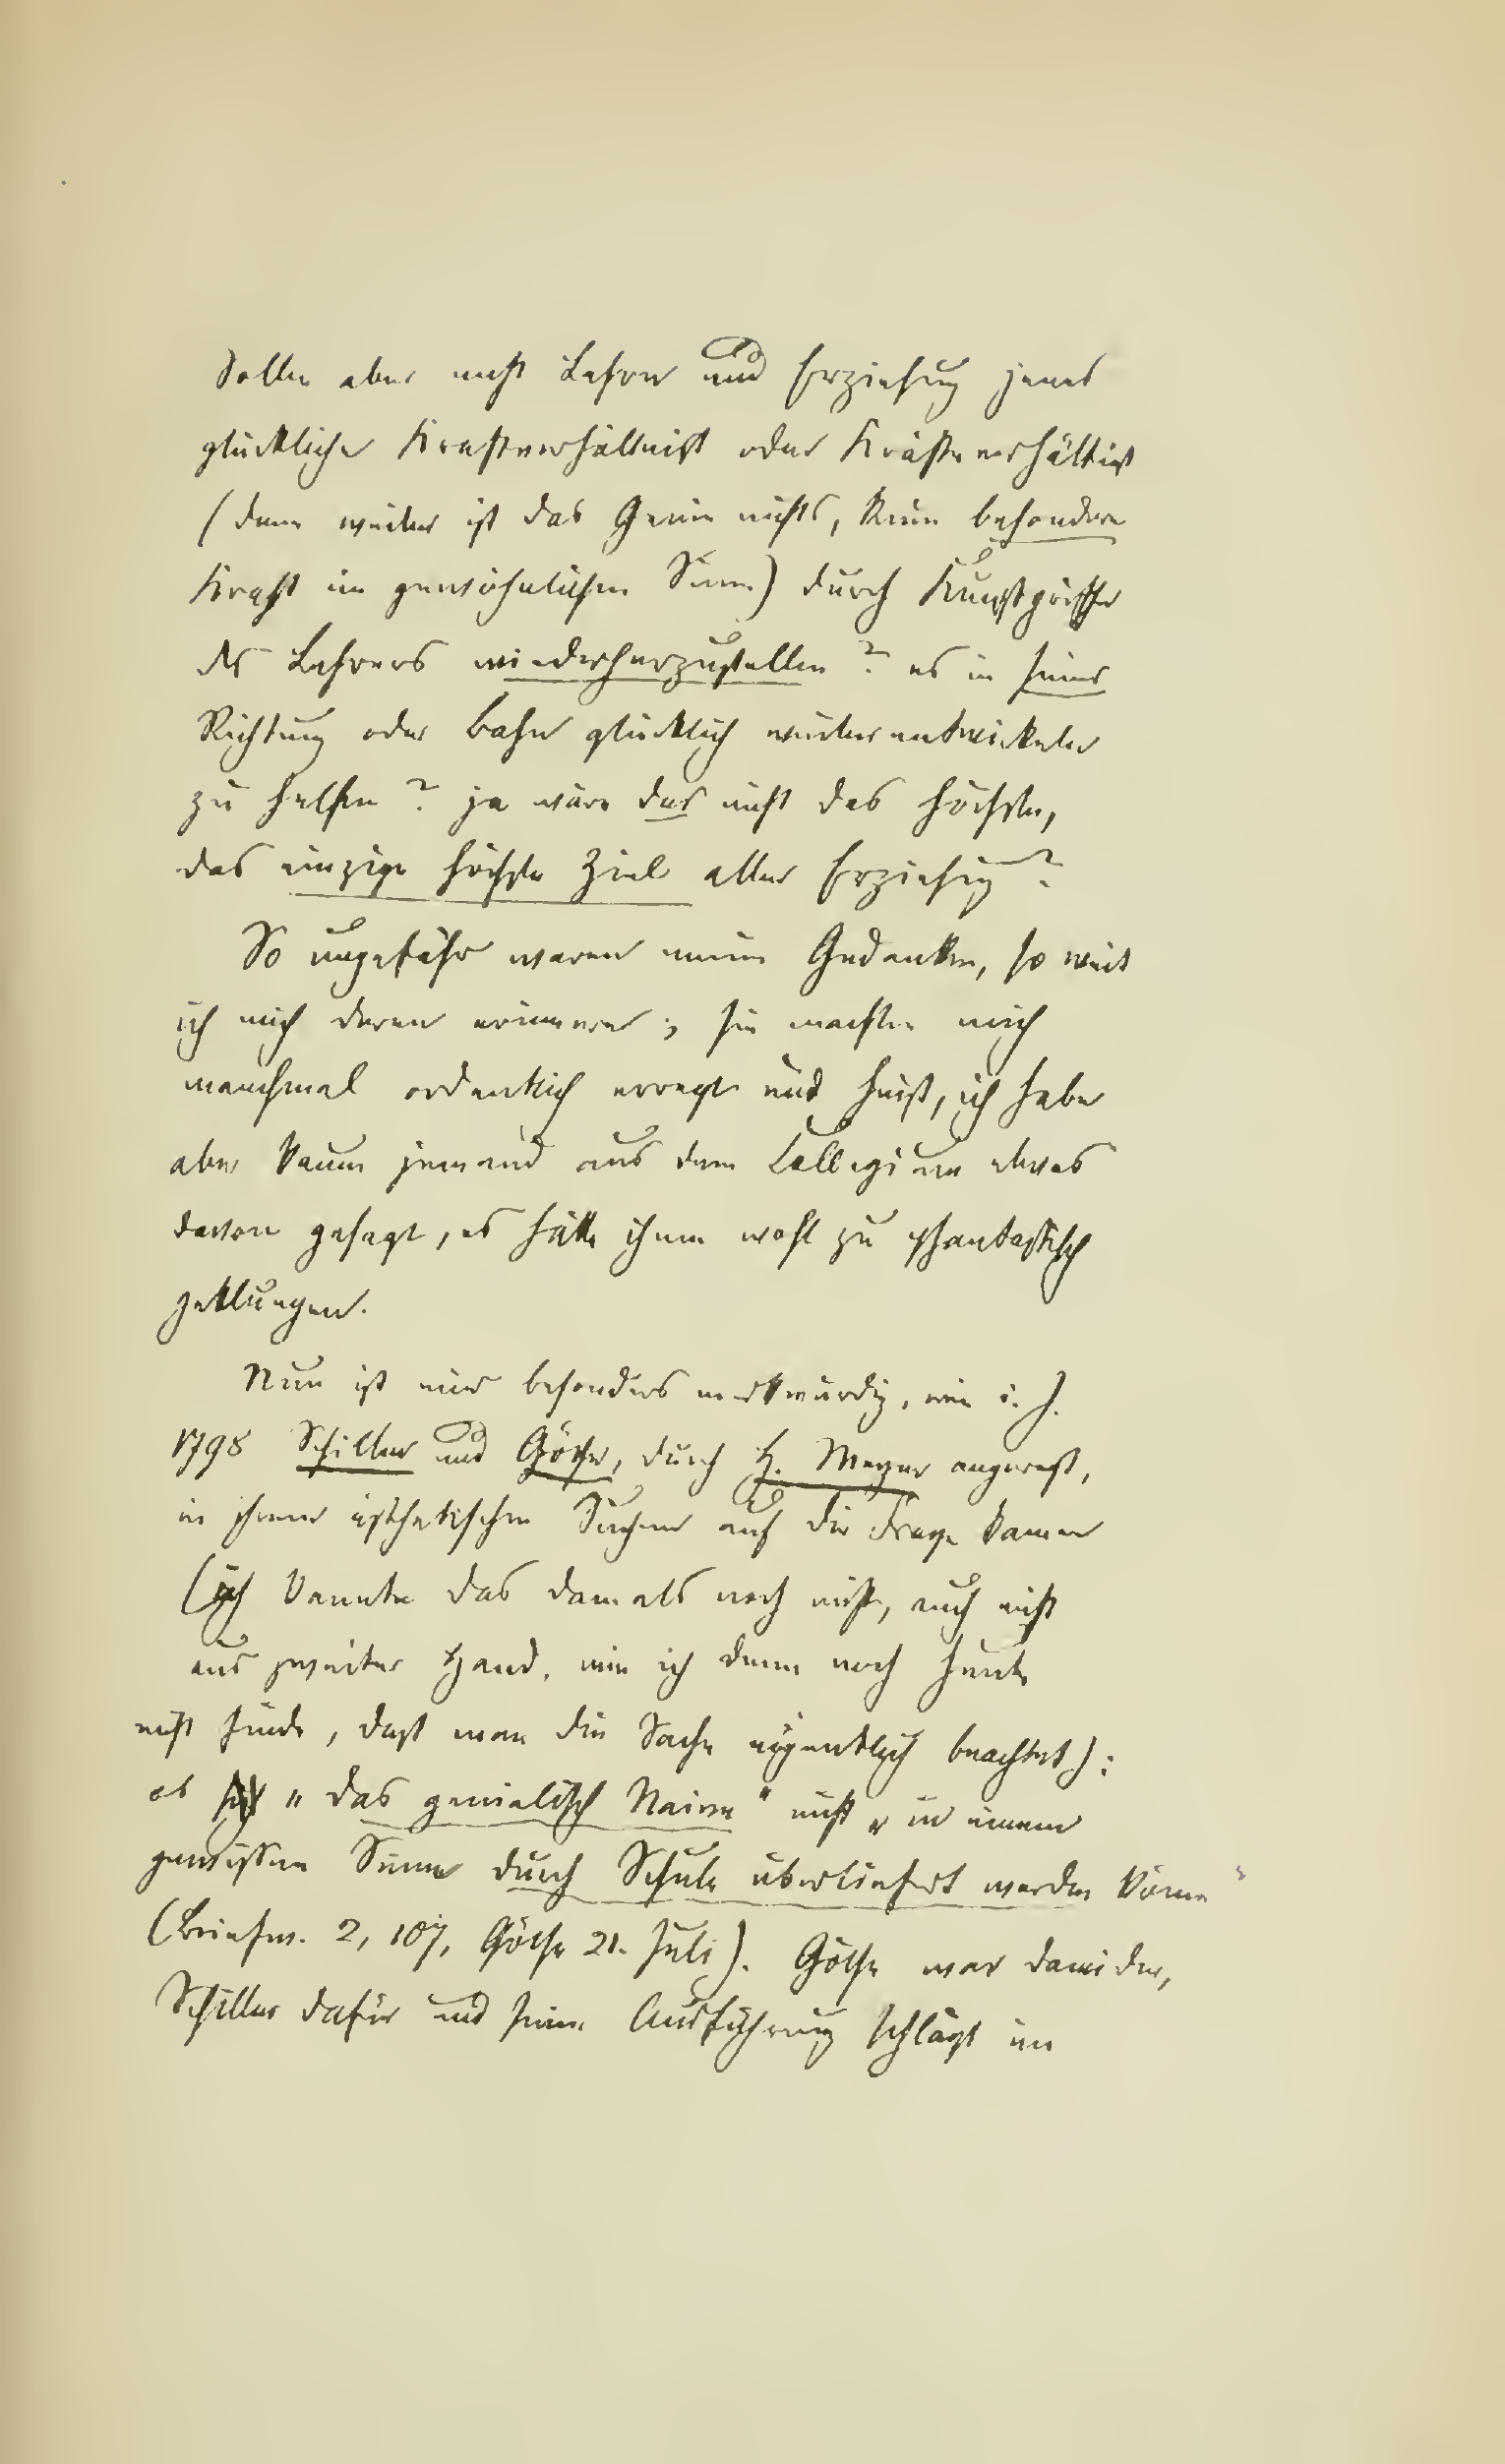 Sollte aber nicht Lehre und Erziehung jenes
glückliche Kraftverhältniß oder Kräfteverhältniß
(denn weiter ist das Genie nichts, keine besondere
Kraft im gewöhnlichen Sinne) durch Kunstgriffe
des Lehrers wiederherzustellen? es in seiner
Richtung oder Bahn glücklich weiter entwickeln
zu helfen? ja wäre das nicht das höchste,
das einzige höchste Ziel aller Erziehung?
So ungefähr waren meine Gedanken, so weit
ich mich deren erinnere; sie machten mich
manchmal ordentlich erregt und heiß, ich habe
aber kaum jemand aus dem Collegium etwas
davon gesagt, es hätte ihnen wohl zu phantastisch
geklungen.
Nun ist mir besonders merkwürdig, wie i. J.
1798 Schiller und Göthe, durch H. Meyer angeregt,
in ihrem ästhetischen Suchen auf die Frage kamen
(ich kannte das damals noch nicht, auch nicht
aus zweiter Hand, wie ich denn noch heute
nicht finde, daß man die Sache eigentlich beachtet):
ob „das genialisch Naive" nicht „in einem
gewissen Sinne durch Schule überliefert werden könne"
(Briefw. 2, 107, Göthe 21. Juli). Göthe war dawider,
Schiller dafür und seine Ausführung schlägt im